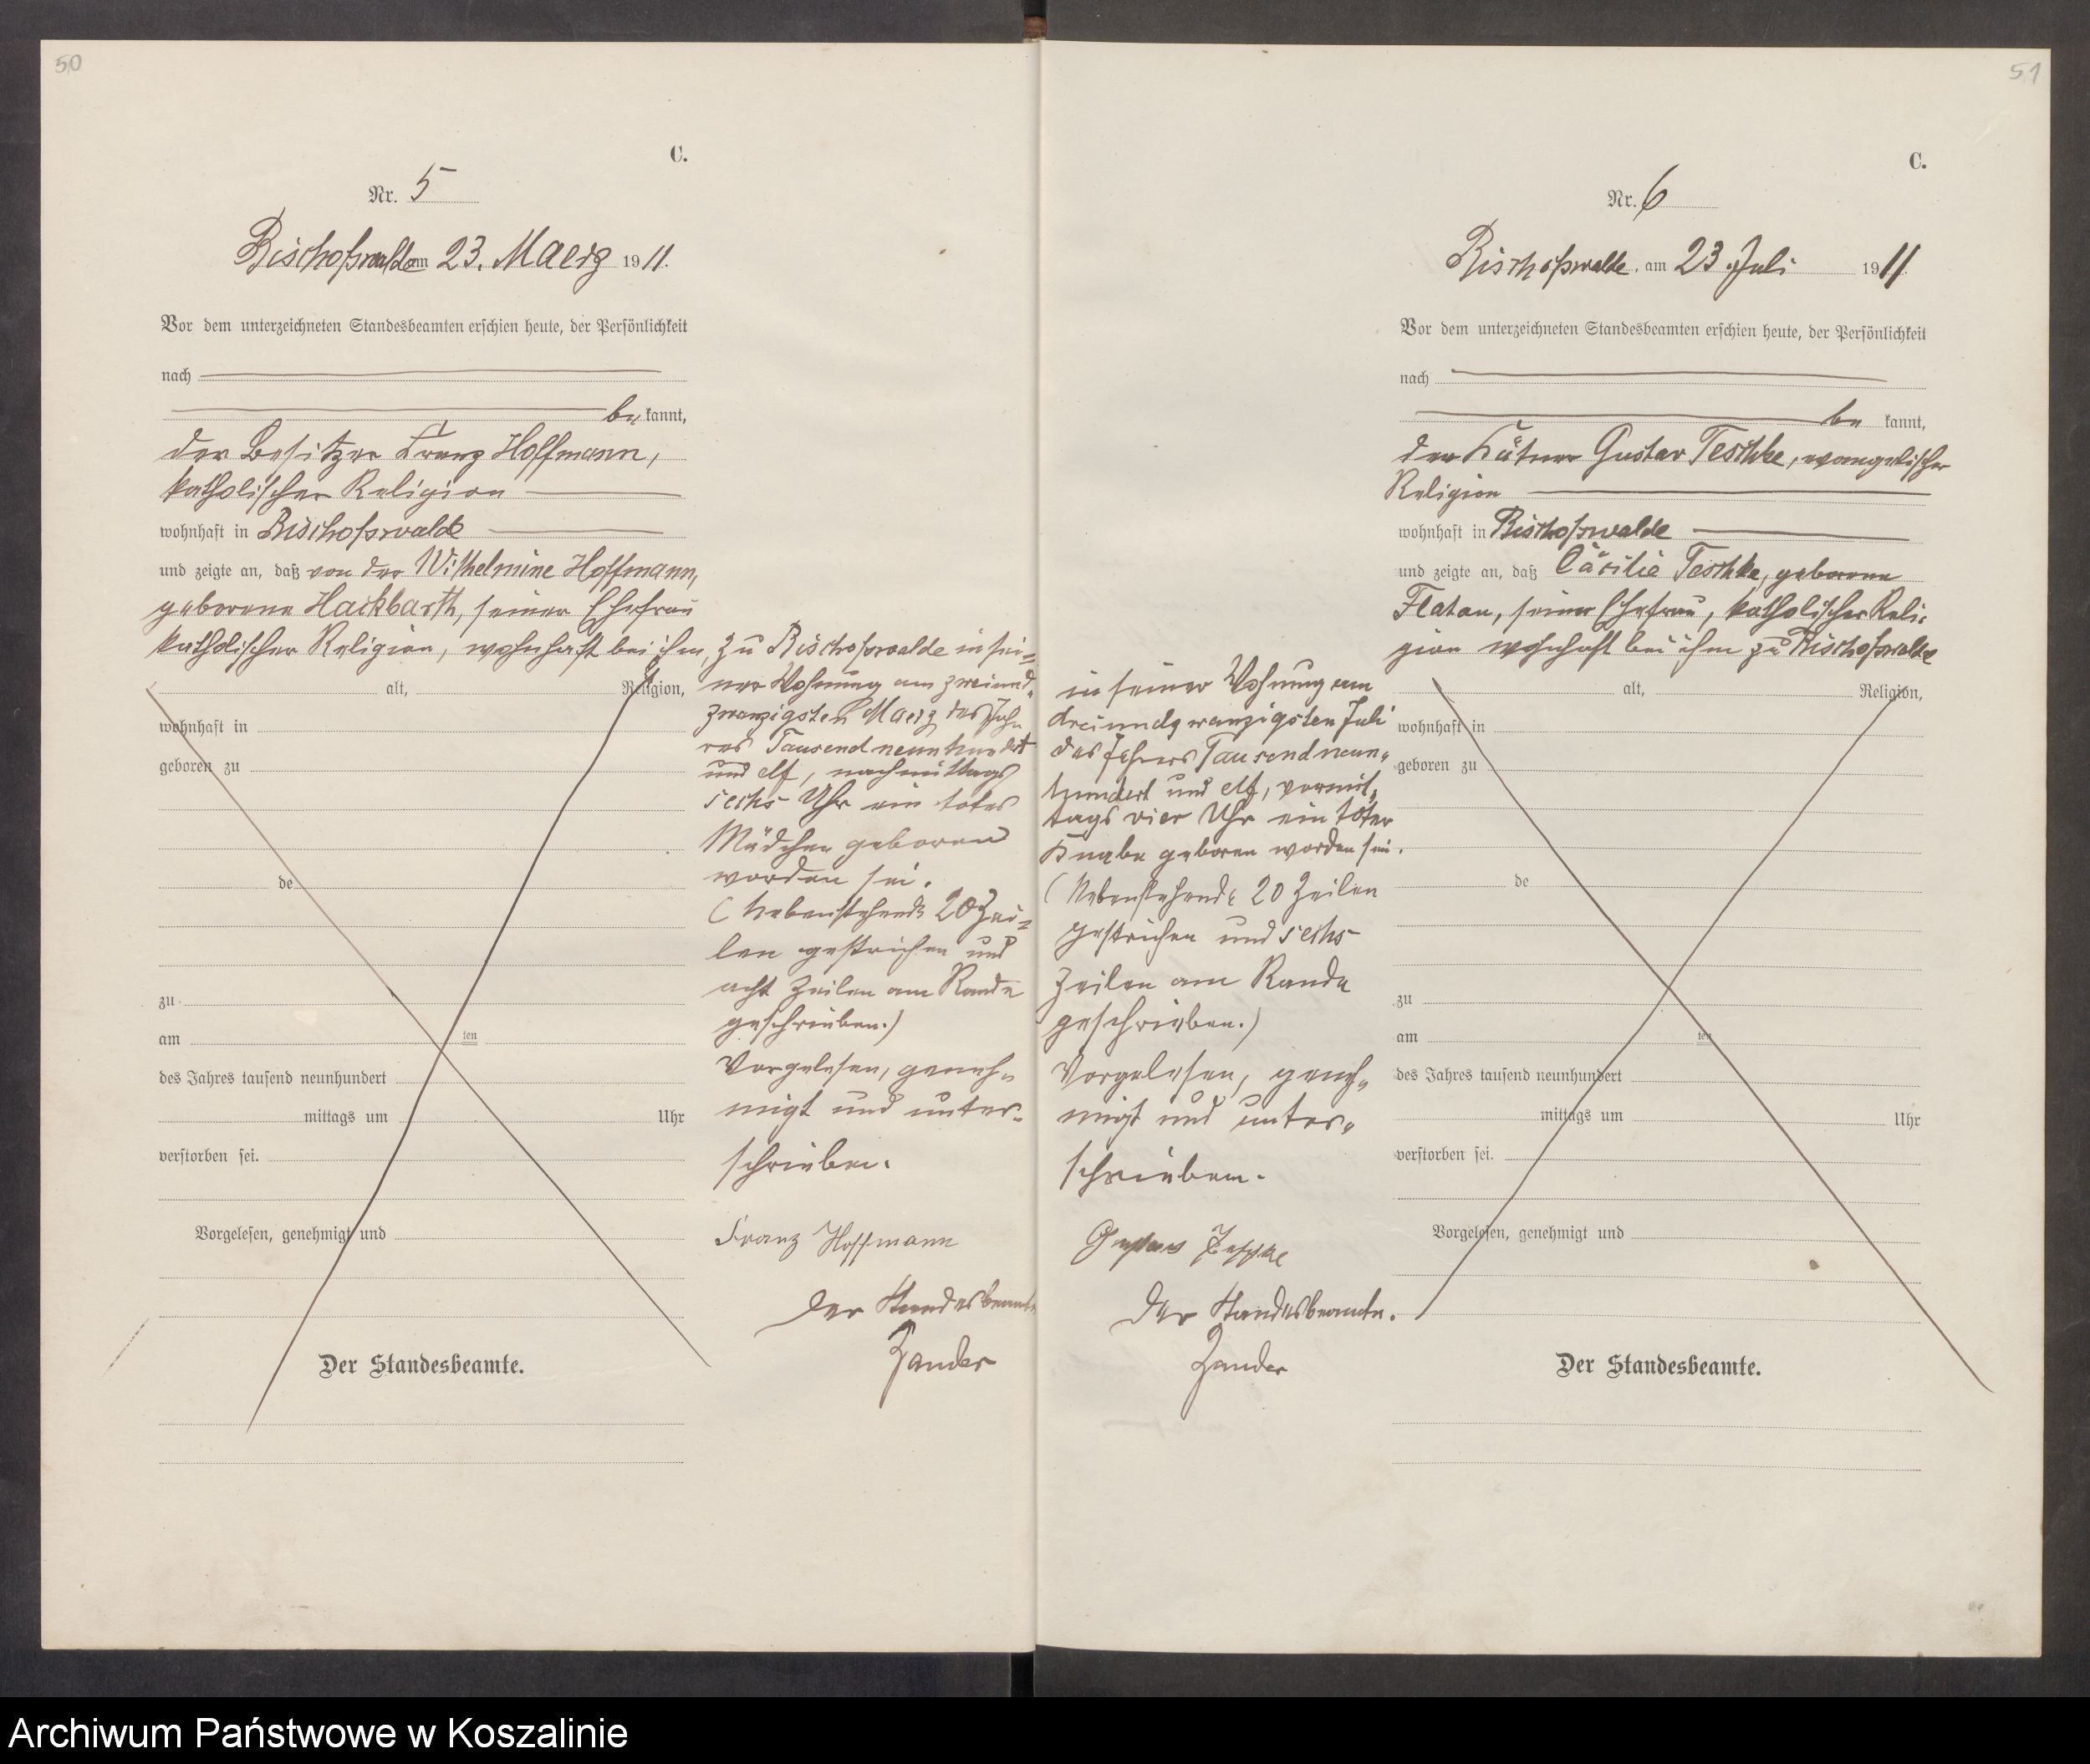 50
C.
Nr. 5
Bischofswalde am 23. Maerz 1911.
Vor dem unterzeichneten Standesbeamten erschien heute, der Persönlichkeit
nach
be kannt,
der Besitzer Franz Hoffmann,
katholischer Religion
wohnhaft in Bischofswalde
und zeigte an, daß von der Wilhelmine Hoffmann,
geborene Hackbarth, seiner Ehefrau
katholischer Religion, wohnhaft bei ihm,
alt, Religion,
wohnhaft in
geboren zu
de
zu
am ten
des Jahres tausend neunhundert
mittags um Uhr
verstorben sei.
Vorgelesen, genehmigt und
Der Standesbeamte.
zu Bischofswalde in sei=
ner Wohnung am zweiund-
zwanzigsten Maerz des Jah
res Tausend neunhundert
und elf, nachmittags
sechs Uhr ein totes
Mädchen geboren
worden sei.
(Nebenstehende 20 Zei=
len gestrichen und
acht Zeilen am Rande
geschrieben.)
Vorgelesen, geneh-
migt und unter-
schrieben.
Franz Hoffmann
Der Standesbeamte
Zander
51
C.
Nr. 6
Bischofswalde, am 23. Juli 1911
Vor dem unterzeichneten Standesbeamten erschien heute, der Persönlichkeit
nach
be kannt,
der Kätner Gustav Teschke, evangelischer
Religion
wohnhaft in Bischofswalde
und zeigte an, daß Cäcilie Teschke, geborene
Flatau, seiner Ehefrau, katholischer Reli-
gion wohnhaft bei ihm zu Bischofswalde
alt, Religion,
wohnhaft in
geboren zu
de
zu
am ten
des Jahres tausend neunhundert
mittags um Uhr
verstorben sei.
Vorgelesen, genehmigt und
Der Standesbeamte.
in seiner Wohnung am
dreiundzwanzigsten Juli
des Jahres Tausend neun-
hundert und elf, vormit-
tags vier Uhr ein toter
Knabe geboren worden sei.
(Nebenstehende 20 Zeilen
gestrichen und sechs
Zeilen am Rande
geschrieben.)
Vorgelesen, geneh-
migt und unter-
schrieben.
Gustav Teschke
Der Standesbeamte.
Zander
Archiwum Państwowe w Koszalinie